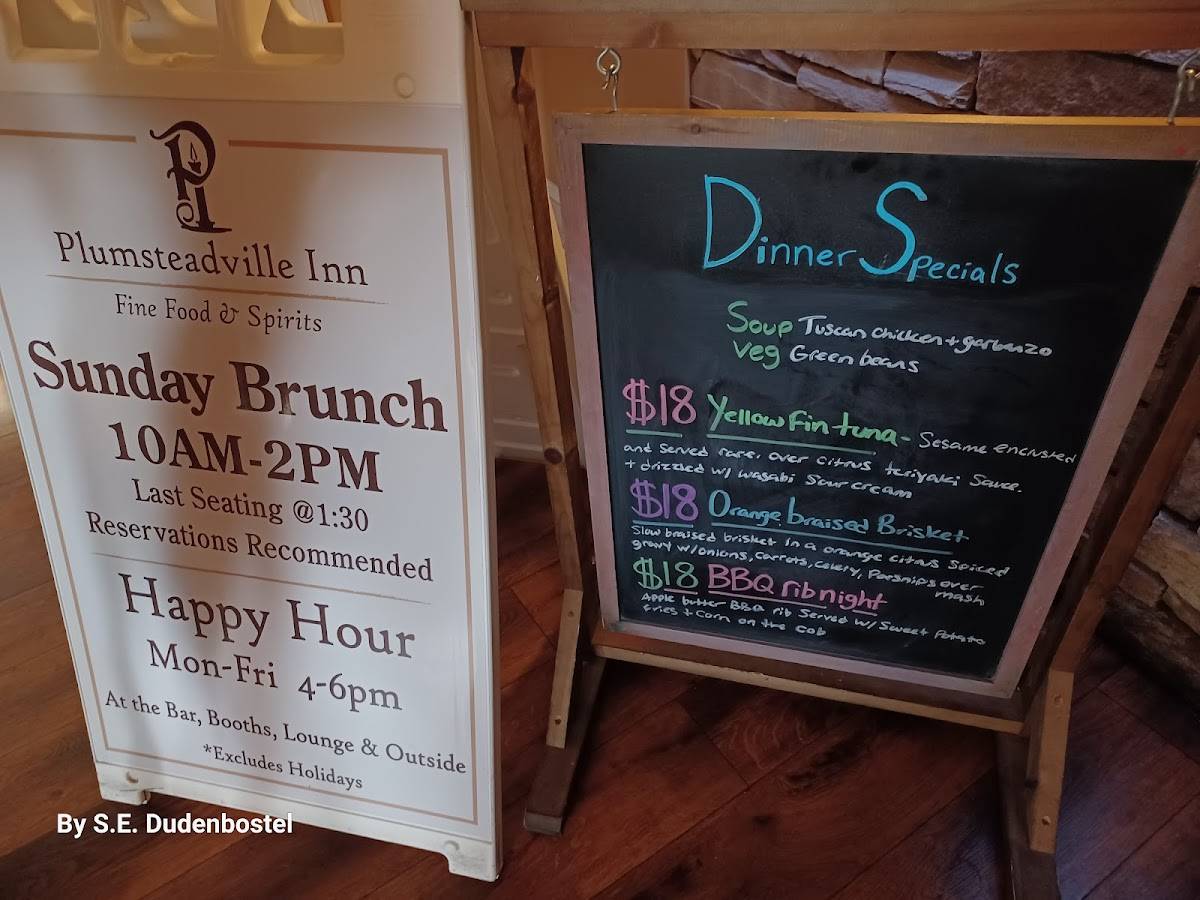 PI
Plumsteadville Inn
Fine Food & Spirits
Sunday Brunch
10AM-2PM
Last Seating @1:30
Reservations Recommended
Happy Hour
Mon-Fri 4-6pm
At the Bar, Booths, Lounge & Outside
*Excludes Holidays
Dinner Specials
Soup Tuscan chicken + garbanzo
Veg Green beans
$18 Yellow Fin tuna - Sesame encrusted
and served rare, over citrus teriyaki sauce.
+ drizzled w/ wasabi sour cream
$18 Orange braised Brisket
Slow braised brisket in a orange citrus spiced
gravy w/onions, carrots, celery, Parsnips over
mash
$18 BBQ rib night
Apple butter BBQ rib Served w/ Sweet Potato
fries + corn on the cob
By S.E. Dudenbostel